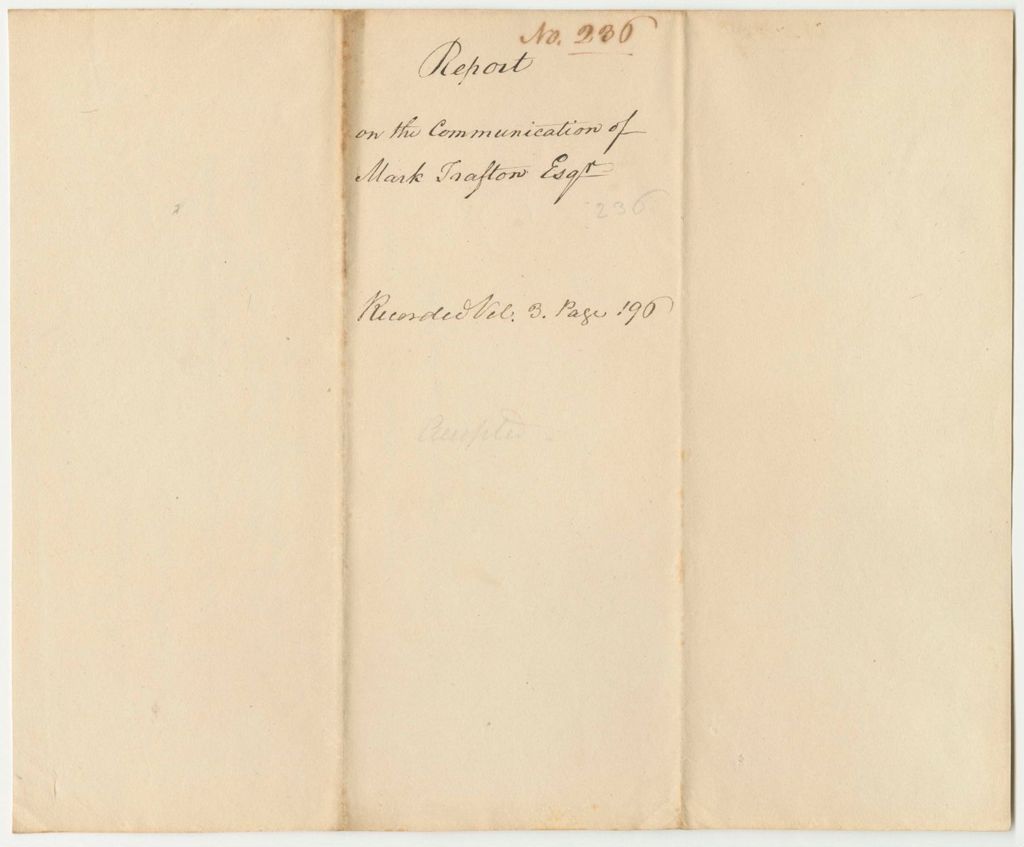 No. 236
Report
on the Communication of
Mark Trafton Esqr
236
Recorded Vol. 3. Page 196
Accepted